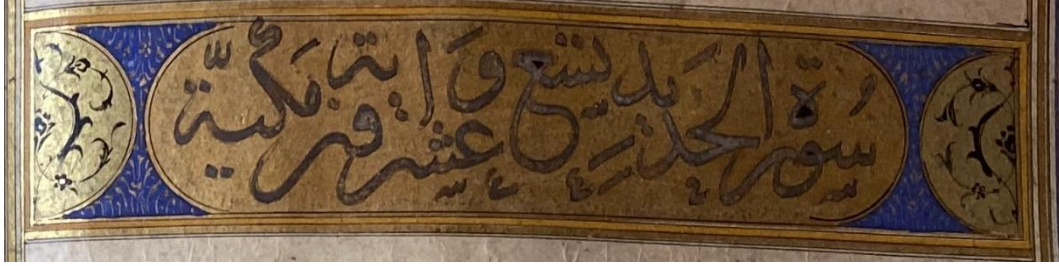 سورة الحديد تسع و عشرون اية مكية